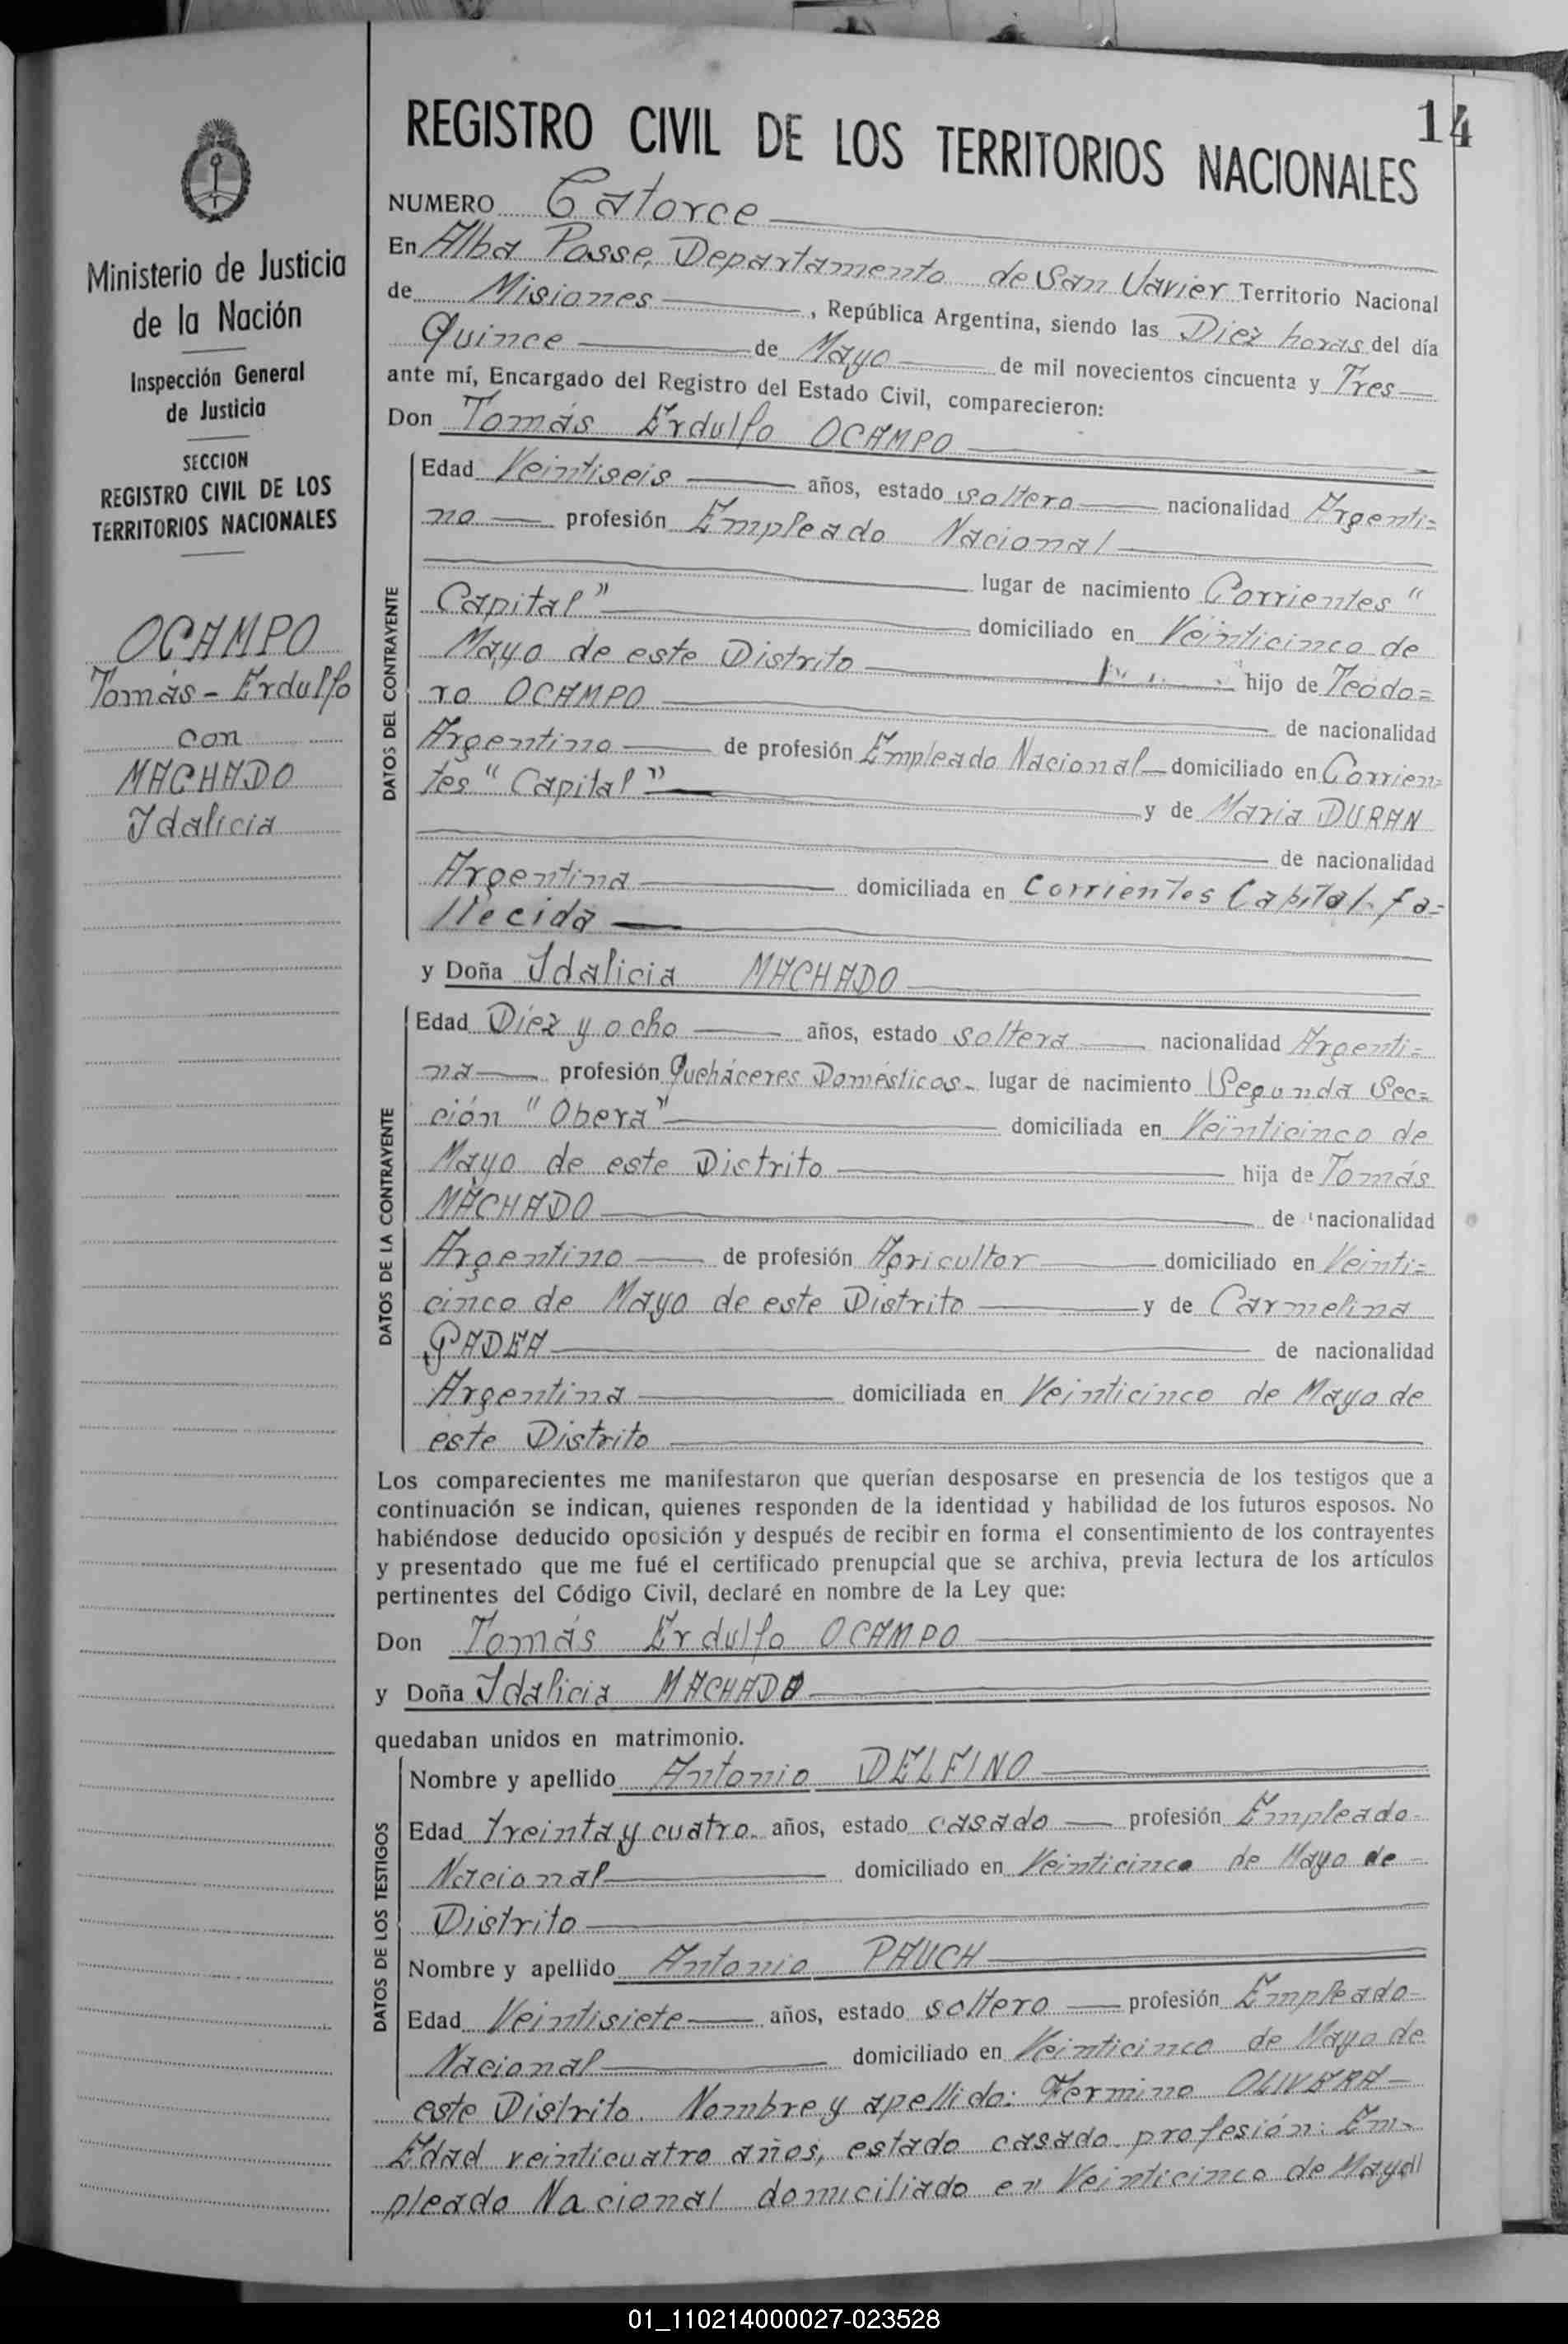 14
REGISTRO CIVIL DE LOS TERRITORIOS NACIONALES
Ministerio de Justicia
de la Nación
Inspección General
de Justicia
SECCION
REGISTRO CIVIL DE LOS
TERRITORIOS NACIONALES
OCAMPO
Tomás - Erdulfo
con
MACHADO
Idalicia
NUMERO Catorce
En Alba Posse, Departamento de San Javier Territorio Nacional
de Misiones, República Argentina, siendo las Diez horas del día
Quince de Mayo de mil novecientos cincuenta y Tres
ante mí, Encargado del Registro del Estado Civil, comparecieron:
Don Tomás Erdulfo OCAMPO
DATOS DEL CONTRAYENTE
Edad Veintiseis años, estado soltero nacionalidad Argenti=
no profesión Empleado Nacional
lugar de nacimiento Corrientes "
Capital" domiciliado en Veinticinco de
Mayo de este Distrito hijo de Teodo=
ro OCAMPO de nacionalidad
Argentino de profesión Empleado Nacional domiciliado en Corrien=
tes "Capital" y de Maria DURAN
de nacionalidad
Argentina domiciliada en Corrientes Capital fa=
llecida
y Doña Idalicia MACHADO
DATOS DE LA CONTRAYENTE
Edad Diez y ocho años, estado soltera nacionalidad Argenti=
na profesión Quehaceres Domésticos lugar de nacimiento Segunda Sec=
ción "Obera" domiciliada en Veinticinco de
Mayo de este Distrito hija de Tomás
MACHADO de nacionalidad
Argentino de profesión Agricultor domiciliado en Veinti=
cinco de Mayo de este Distrito y de Carmelina
GADEA de nacionalidad
Argentina domiciliada en Veinticinco de Mayo de
este Distrito
Los comparecientes me manifestaron que querían desposarse en presencia de los testigos que a
continuación se indican, quienes responden de la identidad y habilidad de los futuros esposos. No
habiéndose deducido oposición y después de recibir en forma el consentimiento de los contrayentes
y presentado que me fué el certificado prenupcial que se archiva, previa lectura de los artículos
pertinentes del Código Civil, declaré en nombre de la Ley que:
Don Tomás Erdulfo OCAMPO
y Doña Idalicia MACHADO
quedaban unidos en matrimonio.
DATOS DE LOS TESTIGOS
Nombre y apellido Antonio DELFINO
Edad treinta y cuatro años, estado casado profesión Empleado
Nacional domiciliado en Veinticinco de Mayo de
Distrito
Nombre y apellido Antonio PAUCH
Edad Veintisiete años, estado soltero profesión Empleado
Nacional domiciliado en Veinticinco de Mayo de
este Distrito. Nombre y apellido: Fermino OLIVERA
Edad veinticuatro años, estado casado profesión: Em=
pleado Nacional domiciliado en Veinticinco de Mayo//
01_110214000027-023528